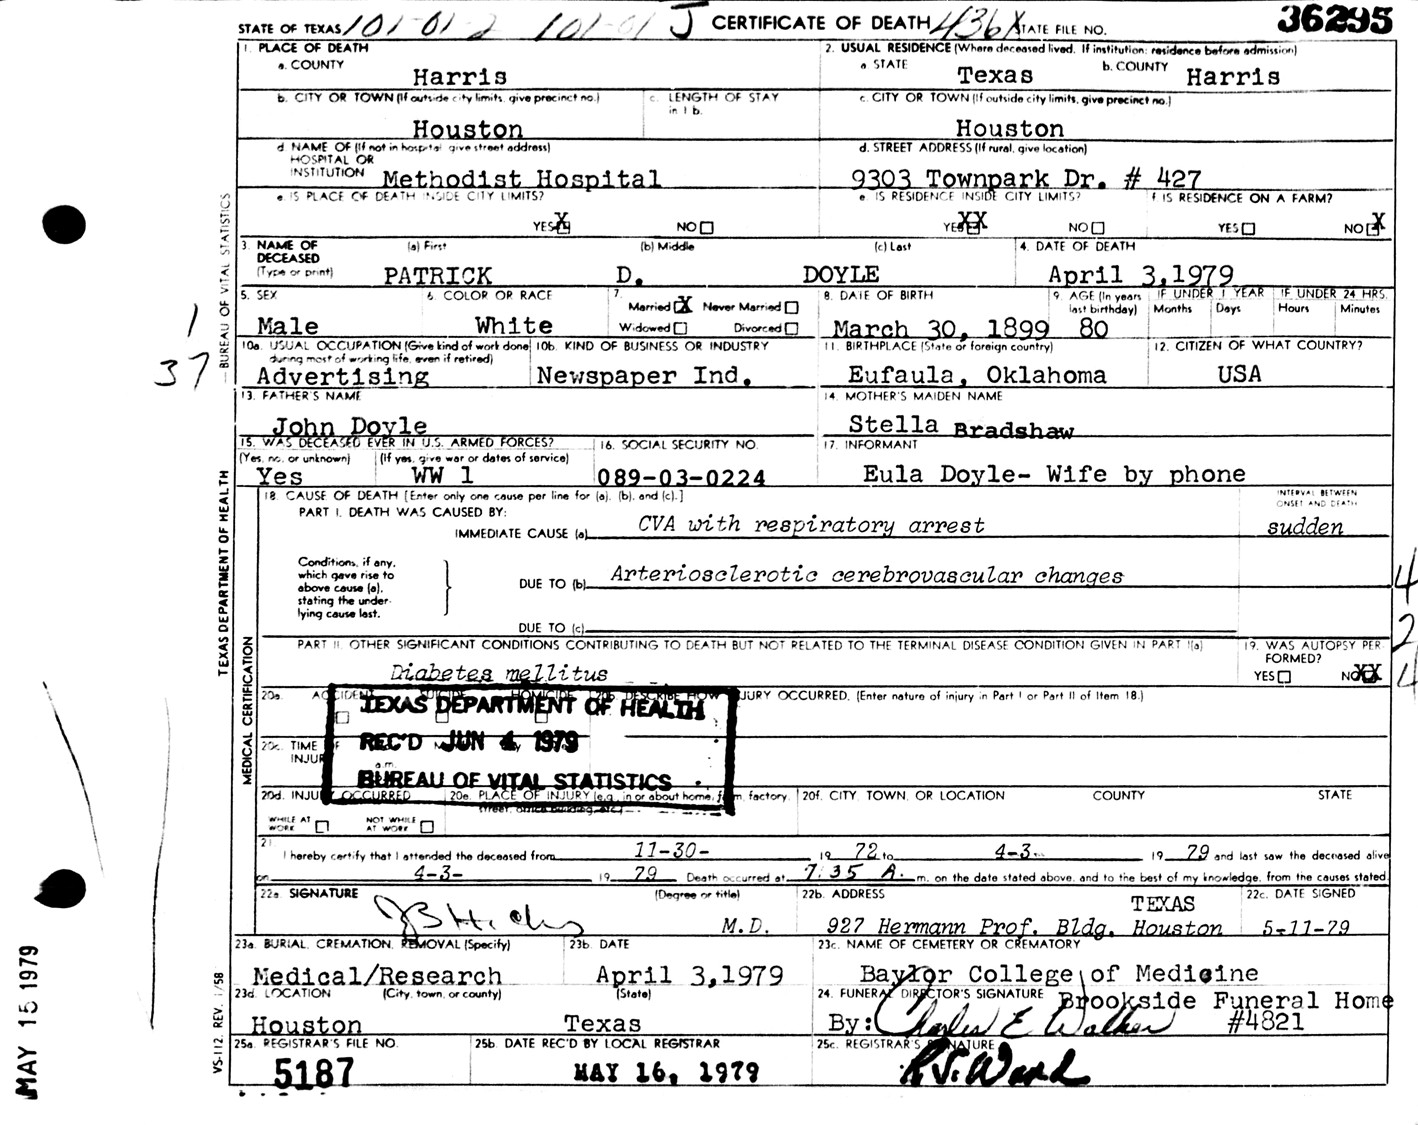 STATE OF TEXAS 101-01-2 101-01 J CERTIFICATE OF DEATH 436X STATE FILE NO. 36295
1. PLACE OF DEATH
a. COUNTY
Harris
2. USUAL RESIDENCE (Where deceased lived. If institution: residence before admission)
a STATE Texas b. COUNTY Harris
b. CITY OR TOWN (If outside city limits, give precinct no.)
Houston
c. LENGTH OF STAY in 1 b.
c. CITY OR TOWN (If outside city limits, give precinct no.)
Houston
d. NAME OF (If not in hospital, give street address)
HOSPITAL OR
INSTITUTION Methodist Hospital
d. STREET ADDRESS (If rural, give location)
9303 Townpark Dr. # 427
e. IS PLACE OF DEATH INSIDE CITY LIMITS?
YES X NO
e IS RESIDENCE INSIDE CITY LIMITS?
YES XX NO
f. IS RESIDENCE ON A FARM?
YES NO X
3. NAME OF DECEASED (Type or print)
(a) First (b) Middle (c) Last
PATRICK D. DOYLE
4. DATE OF DEATH
April 3,1979
5. SEX
Male
6. COLOR OR RACE
White
7.
Married X Never Married
Widowed Divorced
8. DATE OF BIRTH
March 30, 1899
9. AGE (In years last birthday)
80
IF UNDER 1 YEAR
Months Days
IF UNDER 24 HRS.
Hours Minutes
10a. USUAL OCCUPATION (Give kind of work done during most of working life, even if retired)
Advertising
10b. KIND OF BUSINESS OR INDUSTRY
Newspaper Ind.
11. BIRTHPLACE (State or foreign country)
Eufaula, Oklahoma
12. CITIZEN OF WHAT COUNTRY?
USA
13. FATHER'S NAME
John Doyle
14. MOTHER'S MAIDEN NAME
Stella Bradshaw
15. WAS DECEASED EVER IN U.S. ARMED FORCES?
(Yes, no, or unknown) (If yes, give war or dates of service)
Yes WW 1
16. SOCIAL SECURITY NO.
089-03-0224
17. INFORMANT
Eula Doyle- Wife by phone
18. CAUSE OF DEATH [Enter only one cause per line for (a), (b), and (c).]
PART I. DEATH WAS CAUSED BY:
IMMEDIATE CAUSE (a) CVA with respiratory arrest
INTERVAL BETWEEN ONSET AND DEATH
sudden
Conditions, if any, which gave rise to above cause (a), stating the under-lying cause last.
DUE TO (b) Arteriosclerotic cerebrovascular changes
DUE TO (c)
PART II. OTHER SIGNIFICANT CONDITIONS CONTRIBUTING TO DEATH BUT NOT RELATED TO THE TERMINAL DISEASE CONDITION GIVEN IN PART I(a)
Diabetes mellitus
19. WAS AUTOPSY PER-FORMED?
YES NO XX
20a. ACCIDENT SUICIDE HOMICIDE
20b. DESCRIBE HOW INJURY OCCURRED. (Enter nature of injury in Part I or Part II of Item 18.)
TEXAS DEPARTMENT OF HEALTH
REC'D JUN 4 1979
BUREAU OF VITAL STATISTICS
20c. TIME OF INJURY
a.m.
20d. INJURY OCCURRED
WHILE AT WORK NOT WHILE AT WORK
20e. PLACE OF INJURY (e.g., in or about home, farm, factory, street, office building, etc.)
20f. CITY, TOWN, OR LOCATION COUNTY STATE
21.
I hereby certify that I attended the deceased from 11-30- 19 72 to 4-3- 19 79 and last saw the deceased alive
on 4-3- 19 79 Death occurred at 7:35 A. m. on the date stated above, and to the best of my knowledge, from the causes stated.
22a. SIGNATURE (Degree or title)
M.D.
22b. ADDRESS
TEXAS
927 Hermann Prof. Bldg. Houston
22c. DATE SIGNED
5-11-79
23a. BURIAL, CREMATION, REMOVAL (Specify)
Medical/Research
23b. DATE
April 3,1979
23c. NAME OF CEMETERY OR CREMATORY
Baylor College of Medicine
23d. LOCATION (City, town, or county) (State)
Houston Texas
24. FUNERAL DIRECTOR'S SIGNATURE Brookside Funeral Home
By: Charles E Walker #4821
25a. REGISTRAR'S FILE NO.
5187
25b. DATE REC'D BY LOCAL REGISTRAR
MAY 16, 1979
25c. REGISTRAR'S SIGNATURE
TEXAS DEPARTMENT OF HEALTH — BUREAU OF VITAL STATISTICS
MEDICAL CERTIFICATION
VS-112, REV. 1/58
MAY 15 1979
1
37
4
2
4